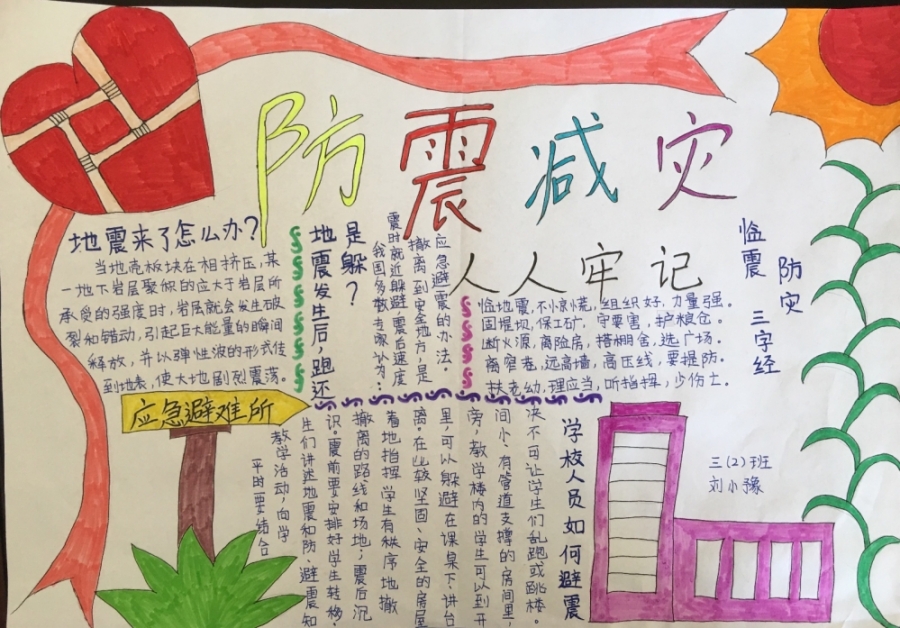 防震减灾
人人牢记
地震来了怎么办?
当地壳板块在相挤压,某
一地下岩层聚积的应大于岩层所
承受的强度时,岩层就会发生破
裂和错动,引起巨大能量的瞬间
释放,并以弹性波的形式传
到地表,使大地剧烈震荡。
地震发生后,跑还
是躲?
我国多数专家认为:
震时就近躲避,震后速度
撤离到安全地方,是
应急避震的办法。
临震
防灾
三字经
临地震,不惊慌,组织好,力量强。
固堤坝,保工矿,守要害,护粮仓。
断火源,离险房,搭棚舍,选广场。
离窄巷,远高墙,高压线,要提防。
扶老幼,理应当,听指挥,少伤士。
应急避难所
学校人员如何避震
平时要结合
教学活动,向学
生们讲述地震和防避震知
识。震前要安排好学生转移、
撤离的路线和场地;震后沉
着地指挥学生有秩序地撤
离。在比较坚固、安全的房屋
里,可以躲避在课桌下、讲台
旁,教学楼内的学生可以到开
间小、有管道支撑的房间里,
决不可让学生们乱跑或跳楼。
三(2)班
刘小豫